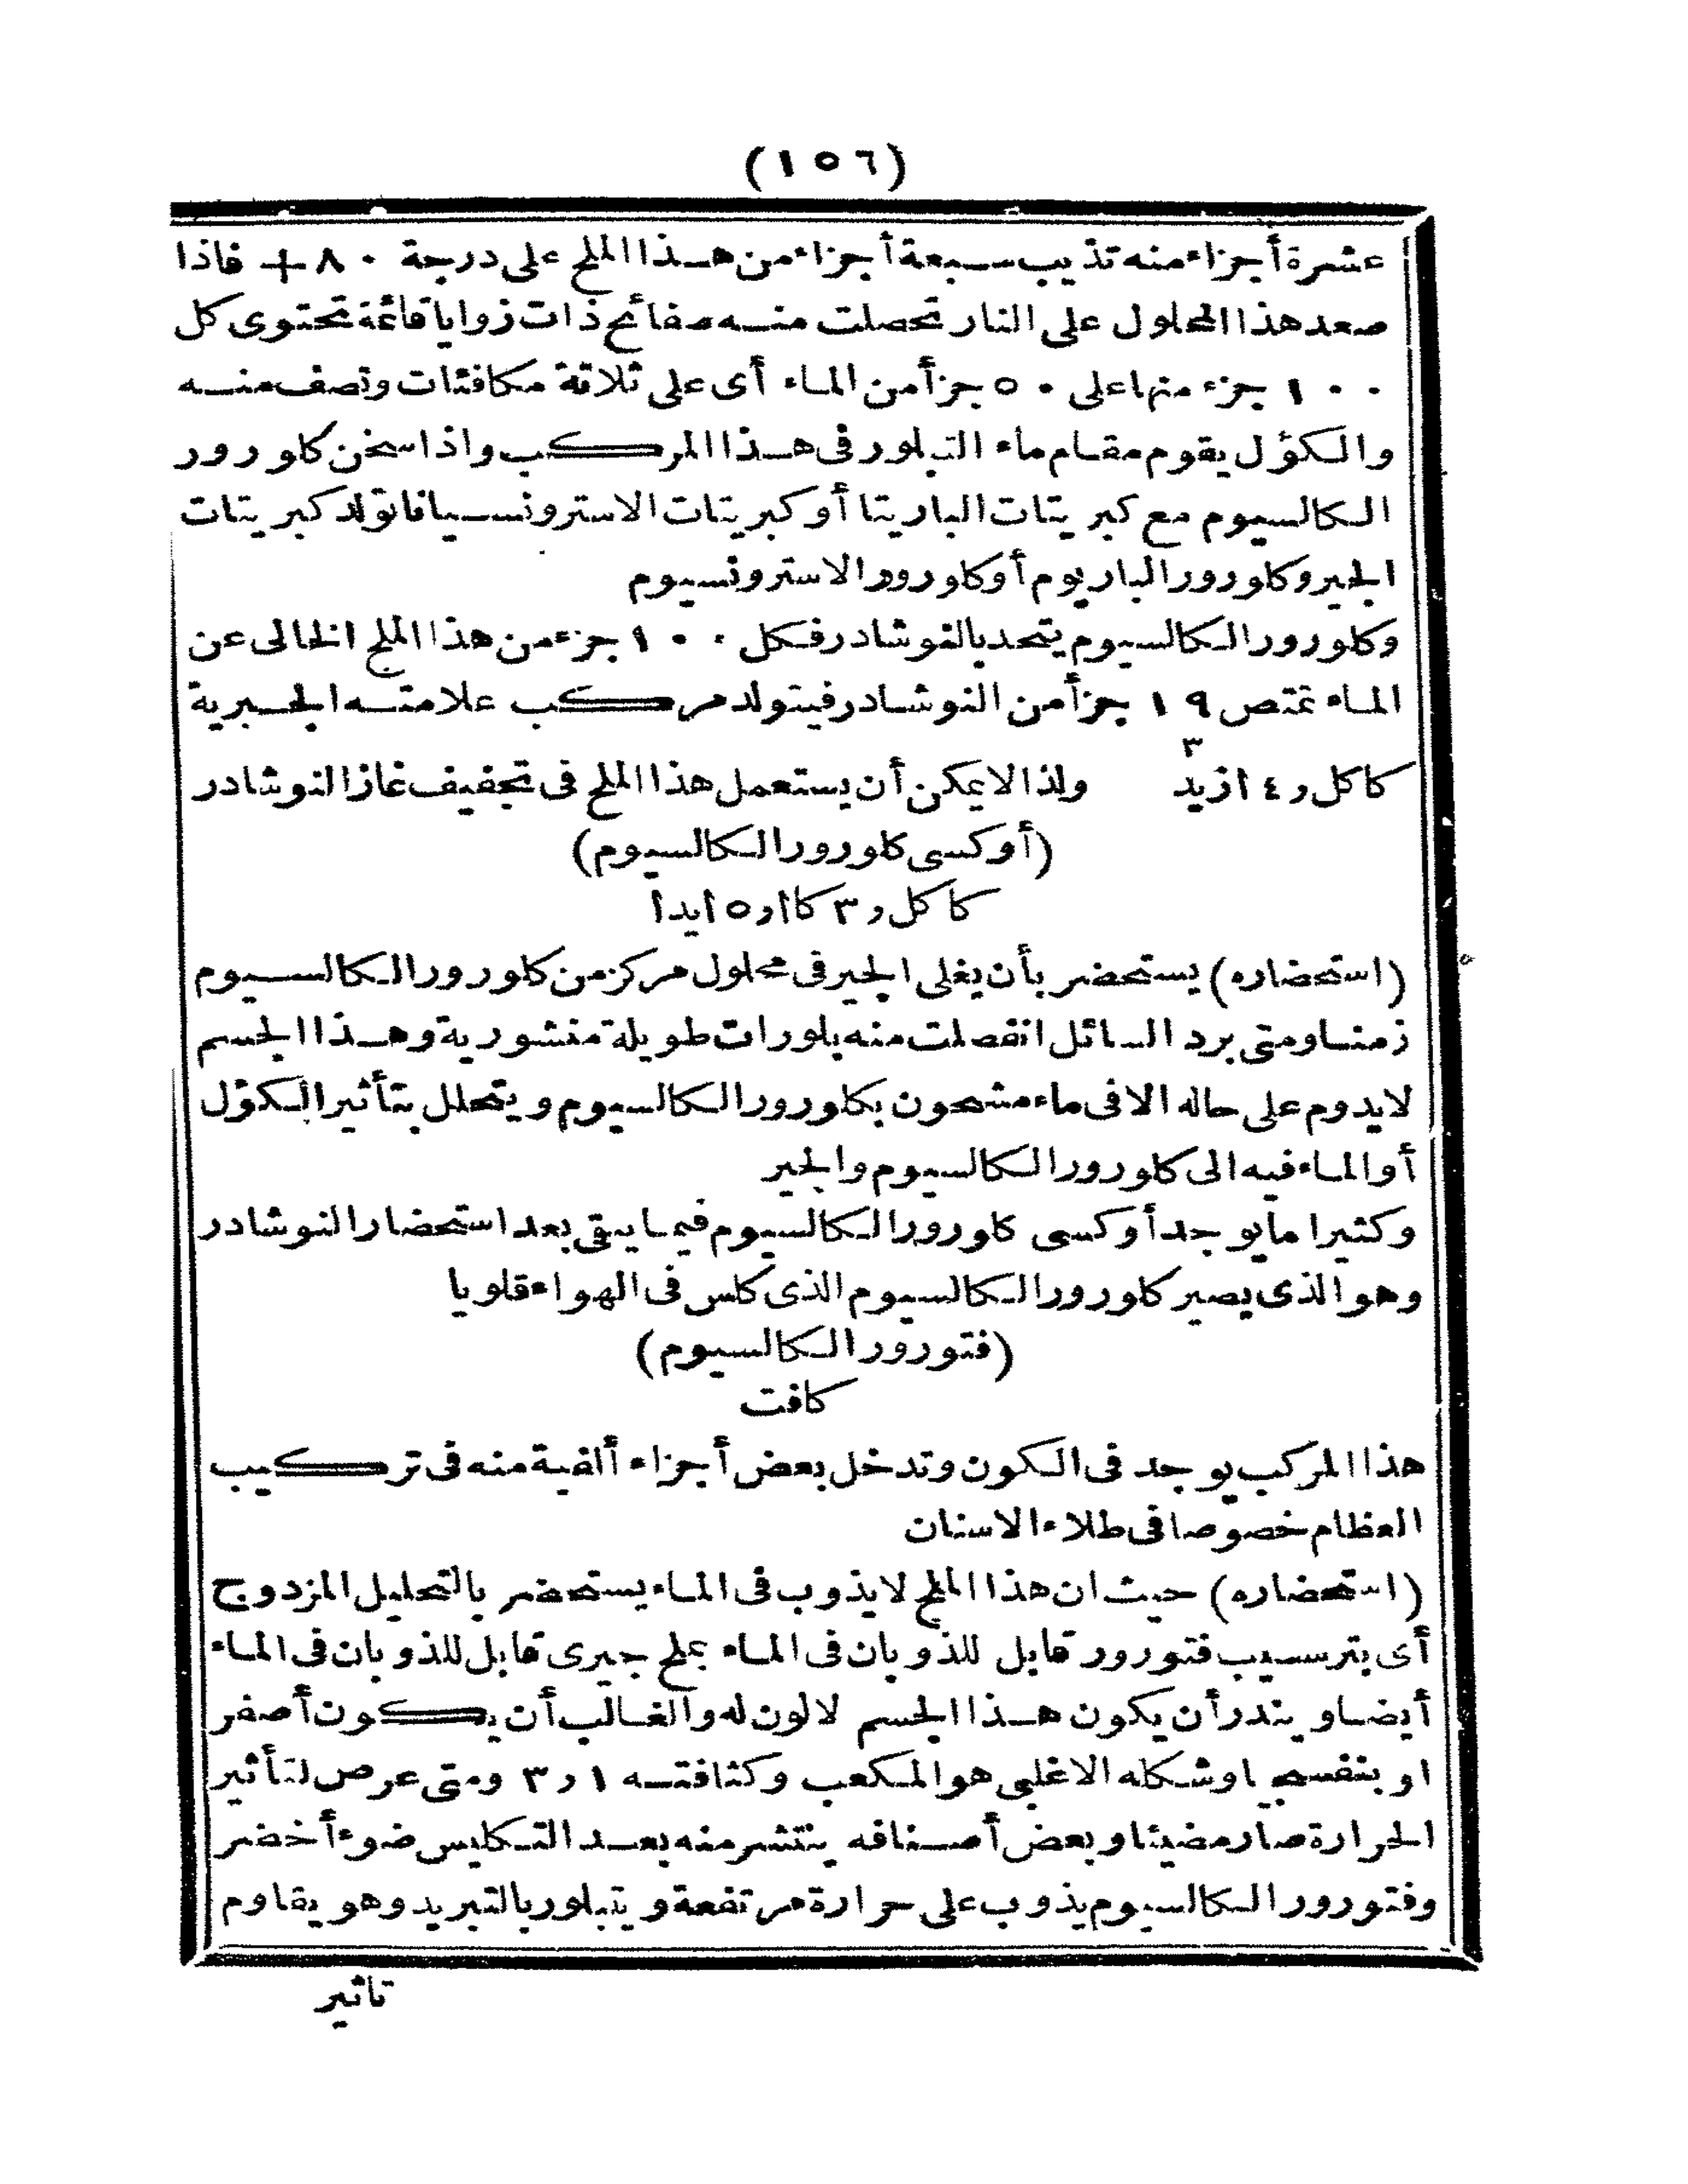 (١٥٦)
عشرة أجزاء منه تذيب سبعة أجزاء من هذا الملح على درجة ٨٠ + فاذا
صعد هذا المحلول على النار تحصلت منه صفائح ذات زوايا قائمة تحتوى كل
١٠٠ جزء منها على ٥٠ جزأ من الماء أى على ثلاثة مكافئات ونصف منه
والكؤل يقوم مقام ماء التبلور فى هذا المركب واذا سخن كلورور
الكالسيوم مع كبريتات الباريتا أو كبريتات الاسترونسيانا تولد كبريتات
الجير وكلورور الباريوم أو كلورور الاسترونسيوم
وكلورور الكالسيوم يتحد بالنوشادر فكل ١٠٠ جزء من هذا الملح الخالى عن
الماء تمتص ١١٩ جزأ من النوشادر فيتولد مركب علامته الجبرية
كا كل ر ٤ ازيد٣ ولذا لا يمكن أن يستعمل هذا الملح فى تجفيف غاز النوشادر
(أوكسى كلورور الكالسيوم)
كا كل ر ٣ كا ا ر ١٥ يدا
(استحضاره) يستحضر بأن يغلى الجير فى محلول مركز من كلورور الكالسيوم
زمنا ومتى برد السائل انفصلت منه بلورات طويلة منشورية وهذا الجسم
لا يدوم على حاله الا فى ماء مشحون بكلورور الكالسيوم ويتحلل بتأثير الكؤل
أو الماء فيه الى كلورور الكالسيوم والجير
وكثيرا ما يوجد أوكسى كلورور الكالسيوم فيما يبقى بعد استحضار النوشادر
وهو الذى يصير كلورور الكالسيوم الذى كلس فى الهواء قلويا
(فتورور الكالسيوم)
كافت
هذا المركب يوجد فى الكون وتدخل بعض أجزاء ألفية منه فى تركيب
العظام خصوصا فى طلاء الاسنان
(استحضاره) حيث ان هذا الملح لا يذوب فى الماء يستحضر بالتحليل المزدوج
أى بترسيب فتورور قابل للذوبان فى الماء بملح جيرى قابل للذوبان فى الماء
أيضا ويندر أن يكون هذا الجسم لا لون له والغالب أن يكون أصفر
او بنفسجيا وشكله الاغلبى هو المكعب وكثافته ٣ ر ١ ومتى عرض لتأثير
الحرارة صار مضيئا وبعض أصنافه ينتشر منه بعد التكليس ضوء أخضر
وفتورور الكالسيوم يذوب على حرارة مرتفعة ويتبلور بالتبريد وهو يقاوم
تاثير